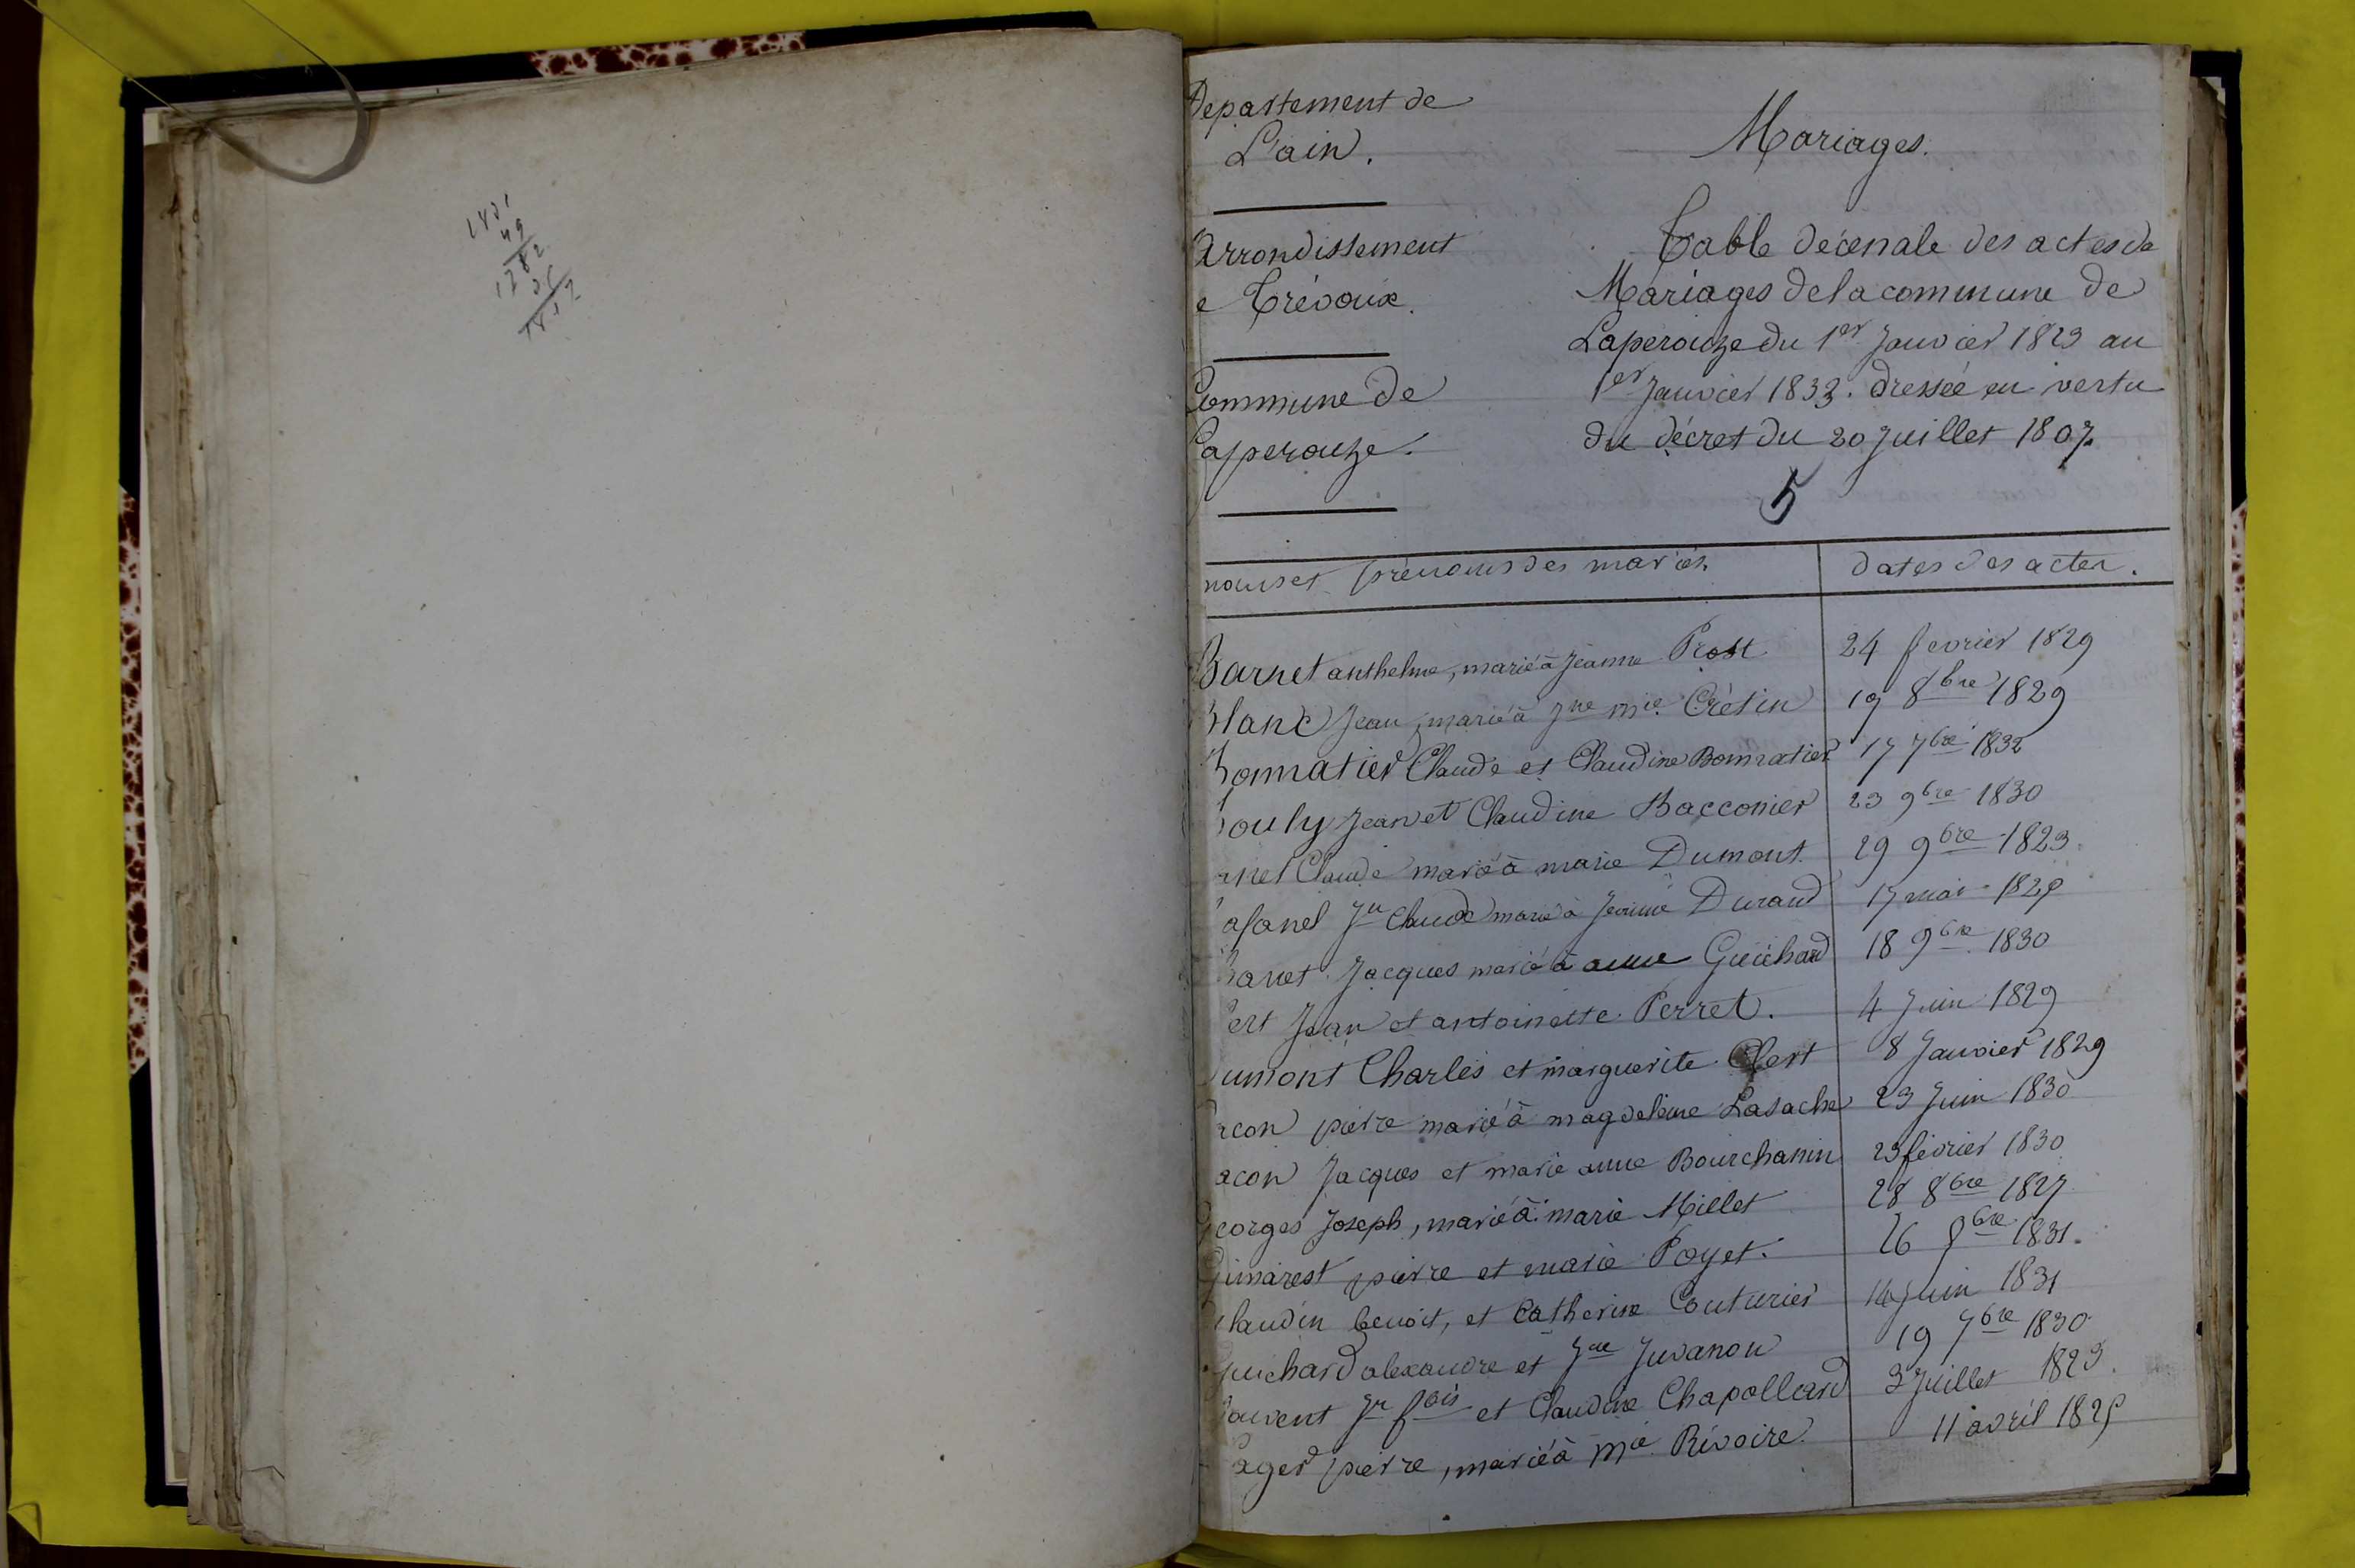 1831
49
1782
30
1812
Departement de
L'ain.
Mariages.
Arrondissement
e Trévoux.
Table décenale des actes de
Mariages de la commune de
Laperouze du 1er Janvier 1823 au
1er Janvier 1833. dressée en vertu
du décret du 20 Juillet 1807.
Commune de
Laperouze.
5
noms et prénoms des mariés.
dates des actes.
Barnet anthelme, marié à Jeanne Prost 24 fevrier 1829
Blanc Jean, marié à Jne mie Crétin 19 8bre 1829
Bonnatier Claude et Claudine Bonnatier 17 7bre 1832
ouly Jean et Claudine Bacconier 23 9bre 1830
nel Claude marié à marie Dumont 29 9bre 1823
afanel Jn Claude marié à Jeanne Durand 17 mai
anet Jacques marié à anne Guichard 18 9bre 1830
ert Jean et antoinette Perret. 4 Juin 1829
umont Charles et marguerite Clert 8 Janvier 1829
acon pierre marié à magdeleine Lasache 23 Juin 1830
acon Jacques et marie anne Bourchanin 23 février 1830
Georges Joseph, marié à marie Millet 28 8bre 1827
Guinarest pierre et marie Poyet. 26 8bre 1831.
laudin benoit, et Catherine Couturier 14 Juin 1831
Guichard alexandre et Jne Juvanon 19 7bre 1830
ouvent Jn fois et Claudine Chapolland 3 Juillet 1823.
ager pierre, marié à mie Rivoire. 11 avril